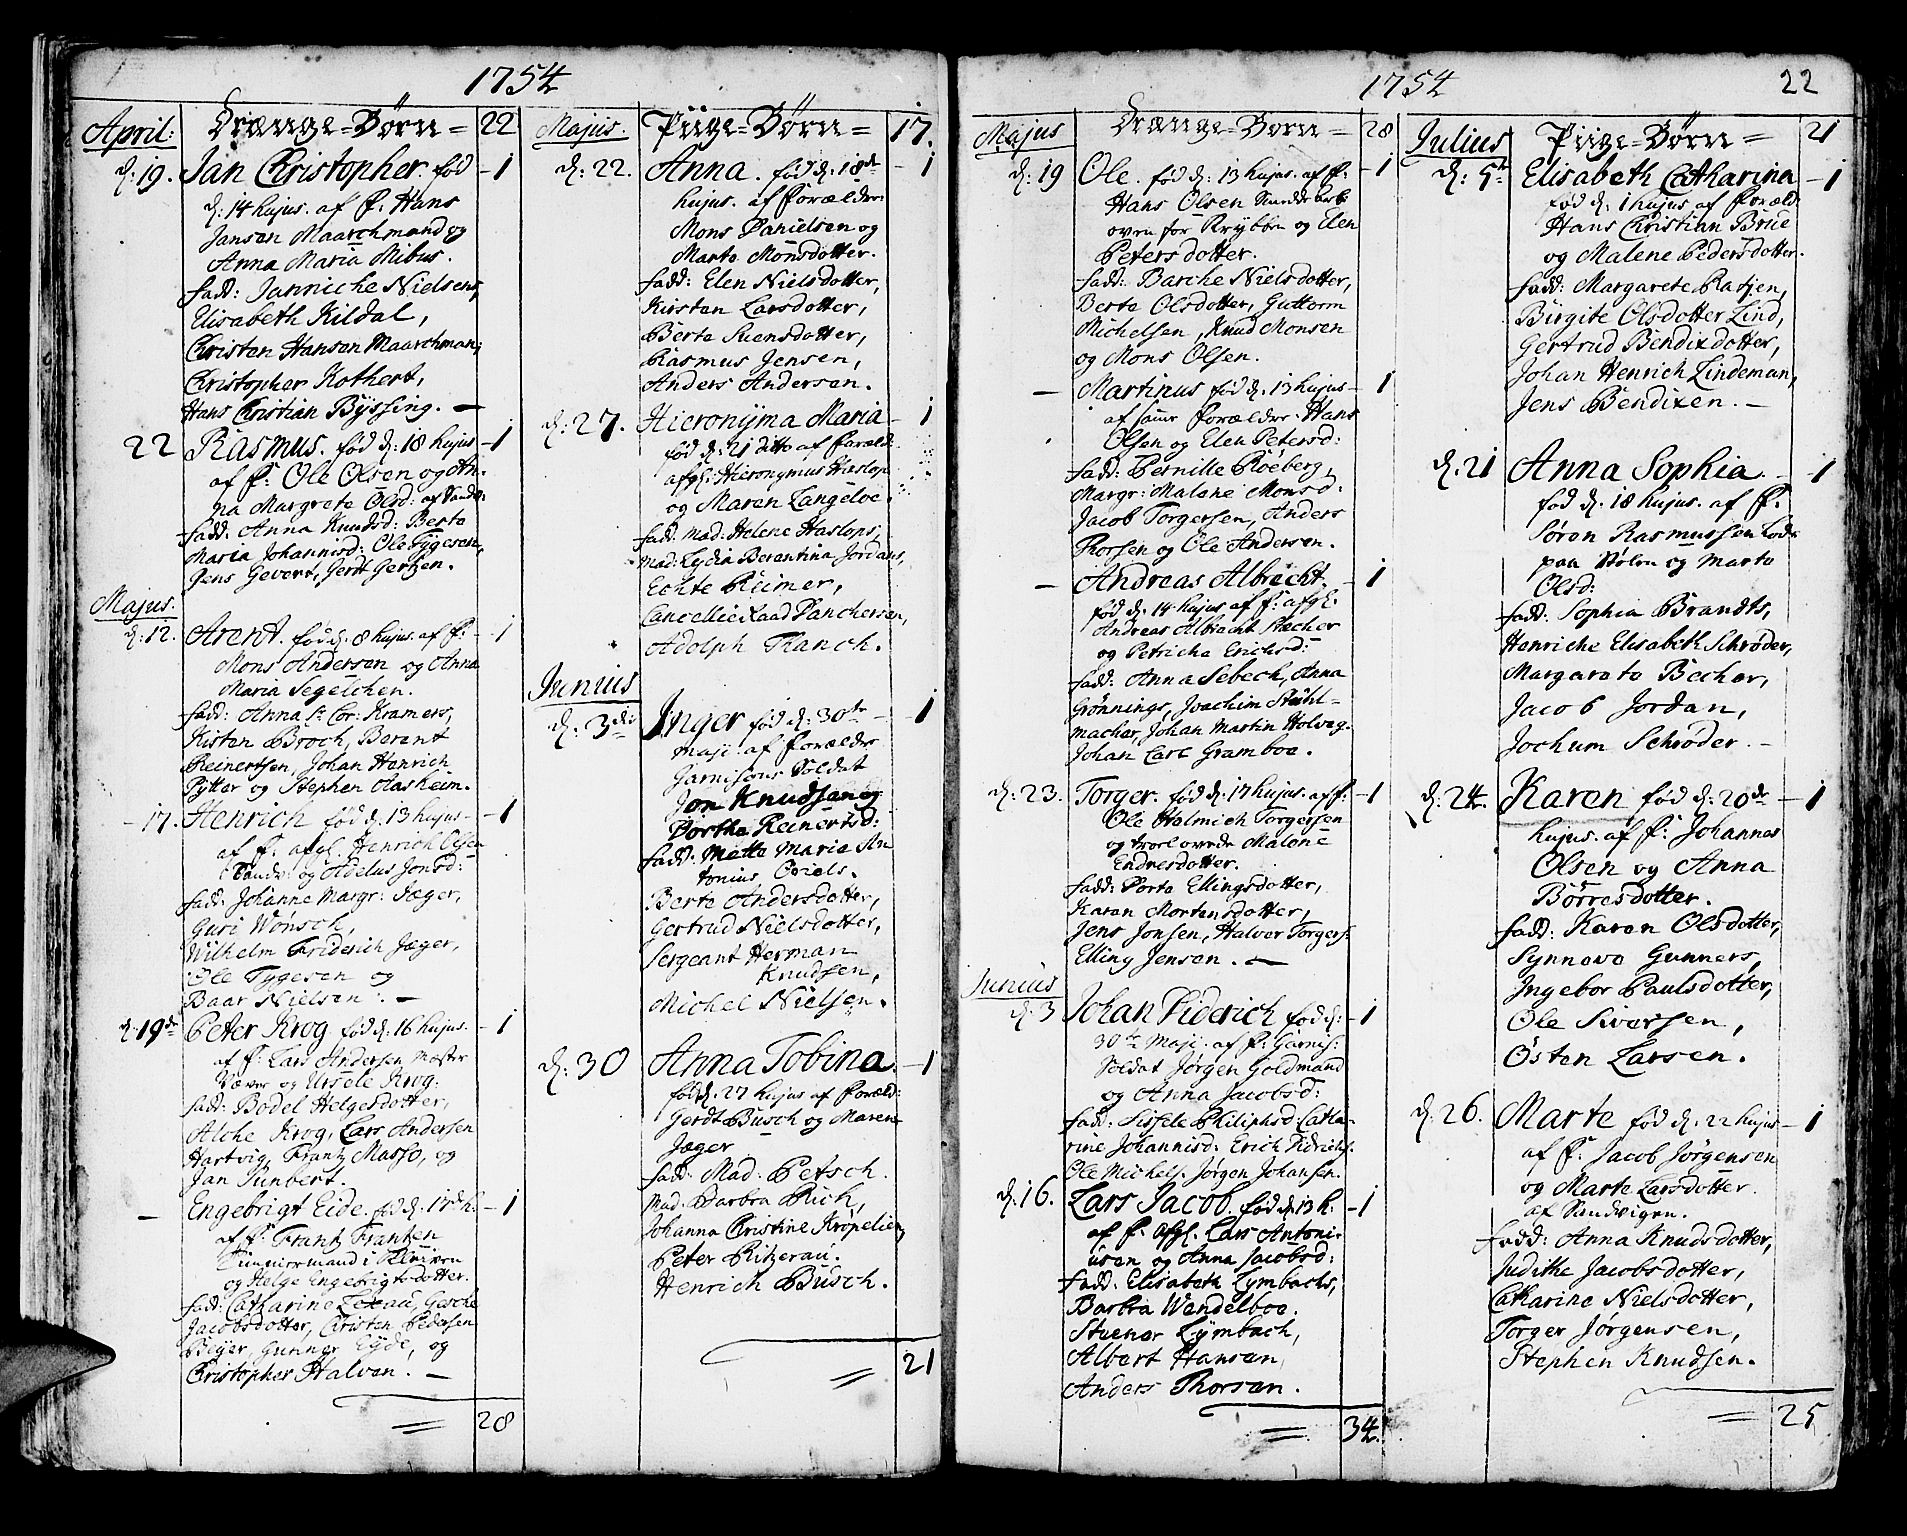 1754
April:
Drænge=Børn=
22
d: 19. Jan Christopher. fød -1
d: 14 hujus. af F: Hans
Jansen Maarchmand og
Anna Maria Mibus.
Fadd: Janniche Nielsens,
Elisabeth Kildal,
Christen Hansen Maarchman,
Christopher Kothert,
Hans Christian Byssing. —
22 Rasmus. fød d: 18 hujus -1
af F: Ole Olsen og An-
na Margrete Olsd: af Sandv:
Fadd: Anna Knudsd: Berte
Maria Johannisd: Ole Tygesen,
Jens Gevert, Jerdt Gertzen.
Majus.
d: 12. Arent. fød d: 8 hujus. af F: -1
Mons Andersen og Anna
Maria Segelchen.
Fadd: Anna Sr Cor: Kramers,
Kisten Broch, Berent
Reinertsen, Johan Henrich
Pytter og Stephen Aasheim.
-17. Henrich fød d: 13 hujus -1
af F: afgl: Henrich Olsen
Sandv: og Adelus Jonsd:
Fadd: Johanne Margr: Jæger,
Guri Wønsch,
Wilhelm Friderich Jæger,
Ole Tygesen og
Baar Nielsen. —
d: 19de Peter Krog fød d: 16 hujus. -1
af F: Lars Andersen Mester
Væver og Ursele Krog.
Fadd: Bodel Helgesdotter,
Alche Krog, Lars Andersen
Hartvig, Frantz Masso, og
Jan Sunbert.
— Engebrigt Eide. fød d: 17de h. -1
af F: Frantz Frantzen
Tummermand i
og Helge Engebrigtsdotter.
Fadd: Catharine Lexau, Gesche
Jacobsdotter, Christen Pedersen
Beyer, Gunner Eyde, og
Christopher Halven. —
= 28
Majus.
Piige=Børn=
17.
d: 22. Anna. fød d: 18de -1
hujus. af Forældre
Mons Danielsen og
Marte Monsdotter.
Fadd: Elen Nielsdotter,
Kirsten Larsdotter,
Berte Suensdotter,
Rasmus Jensen,
Anders Andersen.
d: 27. Hieronijma Maria -1
fød d: 21 ditto af Foræld:
afgl: Hieronymus Haslop
og Maren Langeloe.
Fadd: Mad: Helene Haslops,
Mad: Lydia Berentina Jordans,
Echte Reimer,
Cancellieraad Danchersen,
Adolph Tranch.
Junius
d: 3die Inger fød d: 30te -1
Maji. af Forældre
Garnisons Soldat
Jon Knudsen og
Dorthe Reinertsd:
Fadd: Mette Marie An
tonius Coiels.
Berte Andersdotter,
Gertrud Nielsdotter,
Sergeant Herman
Knudsen,
Michel Nielsen.
d: 30 Anna Tobina. -1
fød d. 27 hujus af Foræld:
Gerdt Busch og Maren
Jæger
Fadd: Mad: Petsch.
Mad: Barbra Rich,
Johanna Christine Kropelien,
Peter Ritzerau.
Henrich Busch.
= 21
1754
22
Majus
Drænge=Born=
28
d: 19 Ole. fød d: 13 hujus. af F: -1
Hans Olsen
oven for Krybben og Elen
Petersdotter.
Fadd: Barche Nielsdotter,
Berte Olsdotter, Guttorm
Michelsen, Knud Monsen
og Mons Olsen.
— Martinus fød d: 13 hujus -1
af samme Forældre. Hans
Olsen og Elen Petersd:
Fadd: Pernille Røeberg,
Margr: Malene Monsd:
Jacob Torgersen, Anders
Thorsen og Ole Andersen.
— Andreas Albrecht. -1
fød d: 14 hujus af F: afgl.
Andreas Albrecht Stæcher
og Petriche Erichsd:
Fadd: Anna Sebech, Anna
Grønnings, Joachim Stuhl=
macher, Johan Martin Holveg.
Johan Carl Gramboe.
d: 23. Torger. fød d: 17 hujus. af F: -1
Ole Holmich Torgersen
og trolovede Malene
Endresdotter.
Fadd: Dorte Ellingsdotter,
Karen Mortensdotter,
Jens Jonsen, Halver Torgers:
Elling Jensen. —
Junius
d. 3 Johan Diderich fød d: -1
30te Maji. af F: Garnis:
Soldat Jørgen Goldmand
og Anna Jacobsd:
Fadd: Sissele Philipsd: Catha-
rine Johannisd: Erich Didrichs:
Ole Michels: Jørgen Johansen.
d: 16. Lars Jacob. fød d: 13 h. -1
af F: afgl. Lars Antoni-
usen og Anna Jacobsd:
Fadd: Elisabeth Lymbachs,
Barbra Wendelboe.
Stuener Lymbach,
Albert Hansen,
Anders Thorsen.
= 34.
Julius
Piige=Børn=
21
d: 5te Elisabeth Catharina -1
fød d: 1 hujus af Foræld:
Hans Christian Brue
og Malene Pedersdotter.
Fadd: Margarete Ratjen,
Birgite Olsdotter Lind,
Gertrud Bendixdotter,
Johan Henrich Lindeman,
Jens Bendixen. —
d. 21 Anna Sophia. -1
fød d: 18 hujus. af F.
Søren Rasmussen Lods
paa Stølen og Marte
Olsd:
Fadd: Sophia Brandts,
Henriche Elisabeth Schrøder,
Margarete Becher,
Jacob Jordan,
Jochum Schrøder. —
d: 24. Karen fød d: 20de -1
hujus. af F: Johannes
Olsen og Anna
Børresdotter.
Fadd: Karen Olsdotter,
Synnove Gunners,
Ingebor Paulsdotter,
Ole Siversen,
Østen Larsen.
d: 26. Marte fød d: 22 hujus -1
af F: Jacob Jørgensen
og Marte Larsdotter.
af Sandvigen.
Fadd: Anna Knudsdotter,
Judithe Jacobsdotter,
Catharine Nielsdotter,
Torger Jørgensen,
Stephen Knudsen.
= 25